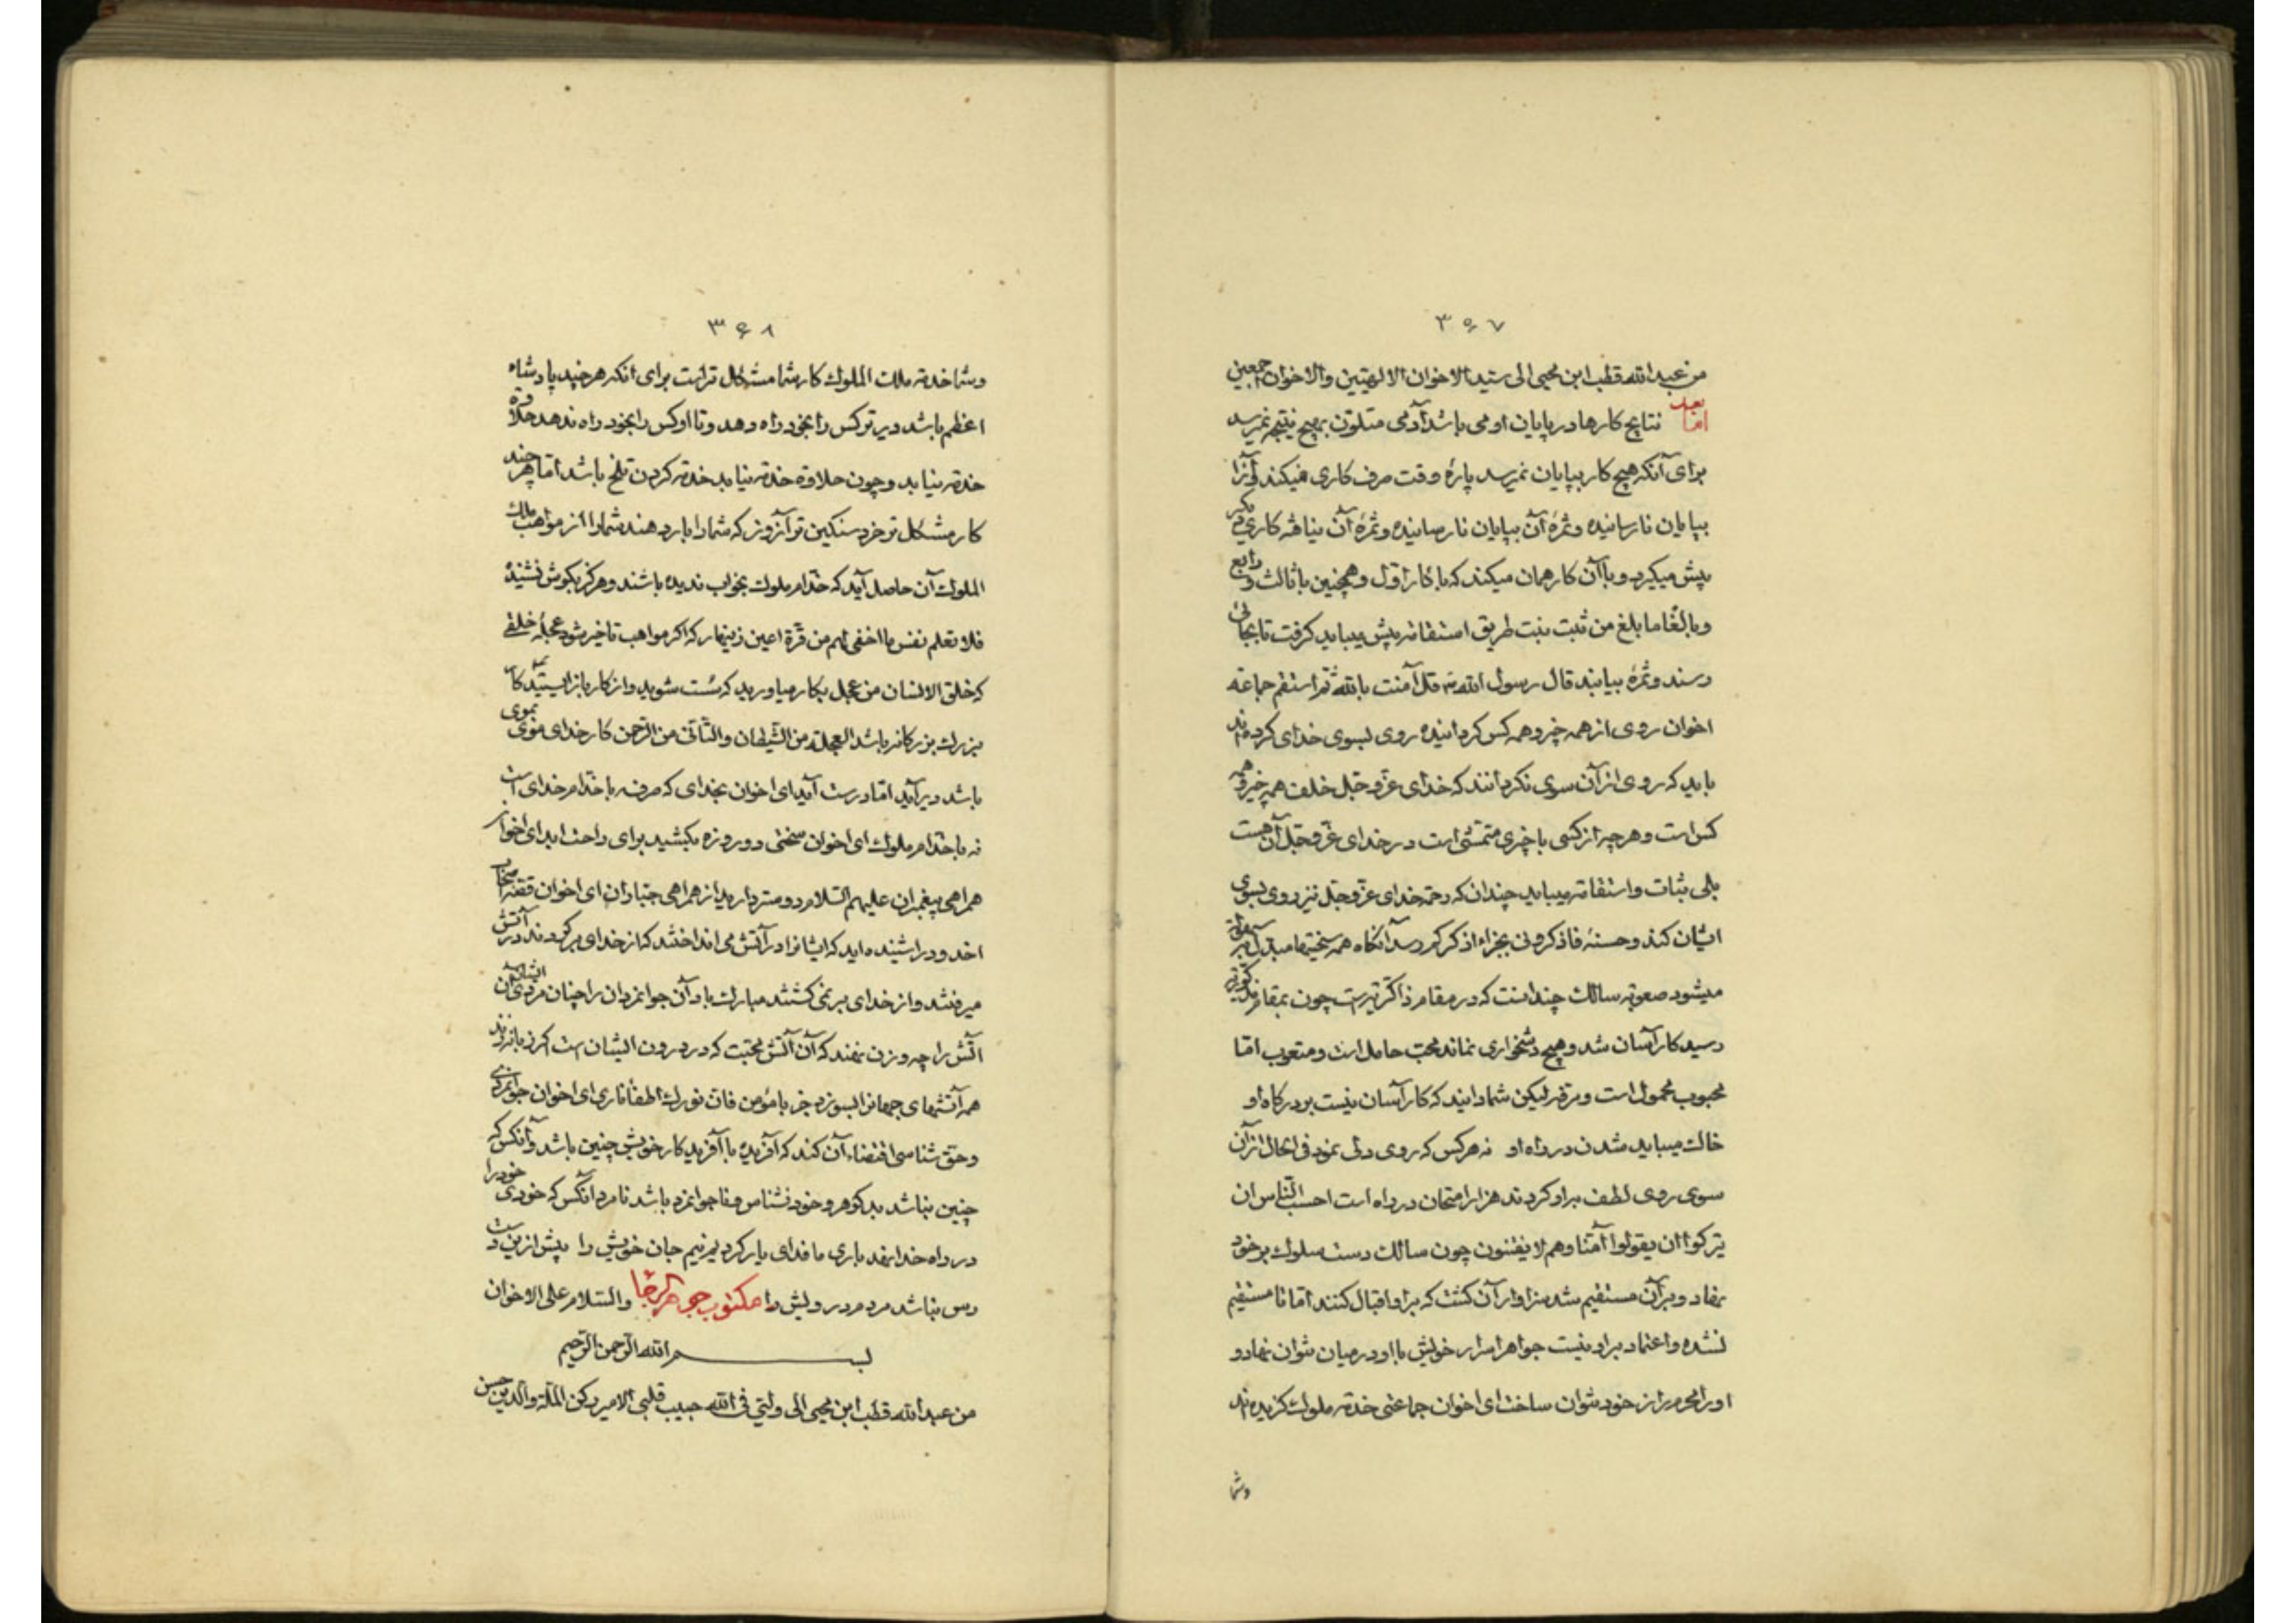 ۳۶۷
من عبد الله قطب ابن محیی الی سید الاخوان الالهیین والاخوان اجمعین
اما بعد نتایج کارها در پایان او می باشد آدمی متلون بهیچ نتیجه نمیرسد
برای آنکه هیچ کار بپایان نمیرسد پارهٔ وقت صرف کاری میکند و آنرا
بپایان نارسانیده و ثمرهٔ آن بپایان نارسانیده و ثمرهٔ آن نیافته کاری دیگر
پیش میگیرد و با آن کار همان میکند که با کار اول و همچنین با ثالث و رابع
و بالغا ما بلغ من ثبت نبت طریق استقامة پیش میباید کرفت تا بجائی
رسند و ثمرهٔ بیابند قال رسول الله قل آمنت بالله ثم استقم جماعة
اخوان روی از همه چیز و همه کس کردانیده روی بسوی خدای کرده اند
باید که روی از آن سوی نکردانند که خدای عز و جل خلف همه چیز و همه
کس است و هر چه از کسی یا چیزی متمشی است در خدای عز و جل آن هست
بلی ثبات و استقامة میباید چندان که رحمة خدای عز و جل نیز روی بسوی
ایشان کند و حسنهٔ فاذکرونی بجزاء اذکرکم رسد آنکاه همه سختیها مبدل بسهولة
میشود صعوبة سالک چندانست که در مقام ذاکریة است چون بمقام مذکوریة
رسید کار آسان شد و هیچ دشخواری نماند محب حامل است و متعوب اما
محبوب محمول است و مرفه لیکن شما دانید که کار آسان نیست بر درکاه او
خاک میباید شدن در راه او نه هر کس که روی دلی نمود فی الحال از آن
سوی روی لطف براو کردند هزار امتحان در راه است احسب الناس ان
یترکوا ان یقولوا آمنا وهم لا یفتنون چون سالک دست سلوک بر خود
نهاد و بر آن مستقیم شد سزاوار آن کشت که براو اقبال کنند اما تا مستقیم
نشده و اعتماد براو نیست جواهر اسرار خویش با او در میان نتوان نهاد و
او را محرم راز خود نتوان ساخت ای اخوان جماعتی خدمة ملوک کزیده اند
وشما
۳۶۸
وشما خدمة ملک الملوک کار شما مشکل تر است برای آنکه هر چند پادشاه
اعظم باشد دیرتر کس را بخود راه دهد و تا او کس را بخود راه ندهد حلاوة
خدمة نیابد و چون حلاوة خدمة نیابد خدمة کردن تلخ باشد اما هر چند
کار مشکل تر خرد سنکین تر آنروز که شما را بار دهند شما را از مواهب ملک
الملوک آن حاصل آید که خدام ملوک بخواب ندیده باشند و هرکز بکوش نشنیده
فلا تعلم نفس ما اخفی لهم من قرة اعین زینهار که اکر مواهب تاخیر شود عجلهٔ خلقی
که خلق الانسان من عجل بکار میاورید که سست شوید و از کار باز ایستید کار
بزرک بزرکانه باشد العجلة من الشیطان والتأنی من الرحمن کار خدای
باشد دیر آید اما درست آید ای اخوان بخدای که صرفه با خدام خدای است
نه با خدام ملوک ای اخوان سختی دو روزه بکشید برای راحت ابد ای اخوان
همراهی پیغمبران علیهم السلام دوستر دارید از همراهی جباران ای اخوان قصهٔ اصحاب
اخدود را شنیده اید که ایشانرا در آتش می انداختند که از خدای برکردند در آتش
میرفتند و از خدای بر نمی کشتند مبارک باد آن جوانمردان را چنان مردی ایشان
آتش را چه وزن نهند که آن آتش محبت که در درون ایشان است اکر زبانه زند
همه آتشهای جهانرا بسوزد جز یا مؤمن فان نورک اطفأ ناری ای اخوان جوانمردی
و حق شناسی اقتضاء آن کند که آفریده با آفریدکار خویش چنین باشد و آنکس که
چنین نباشد بدکوهر و خود نشناس و ناجوانمرد باشد نامرد آنکس که خودی خود را
در راه خدا نهد باری ما فدای یار کردیم نیم جان خویش را بیش ازین دست
رس نباشد مرد مرد درویش را مکتوب جوهر الرجا والسلام علی الاخوان
بسم الله الرحمن الرحیم
من عبد الله قطب ابن محیی الی ولیی فی الله حبیب قلبی الامیر رکن الملة والدین حسن